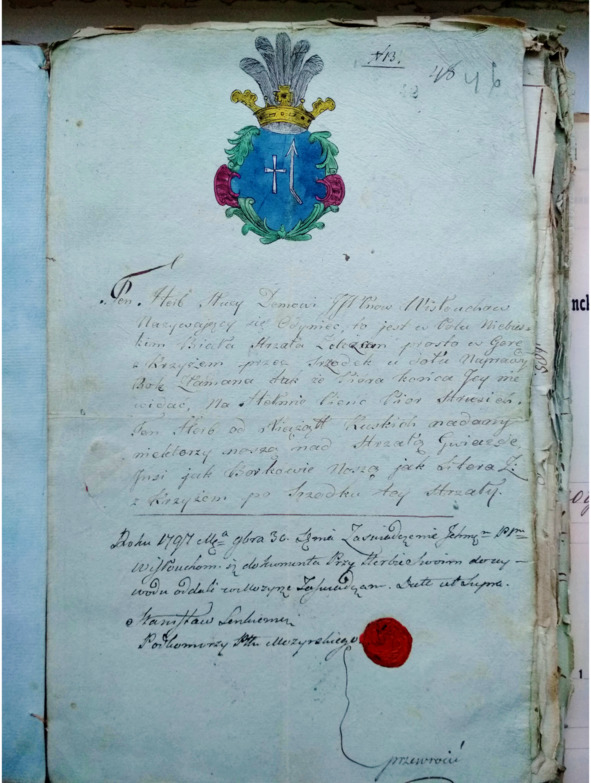 N13.
46
46
Ten Herb Służy Domowi JJWW Panów Wisłouchów
Nazywający się Odyniec, to jest w Polu Niebies-
kim Biała Strzała Żeleźcem prosto w Górę
z Krzyżem przez Srzodek u dołu Naprawy
Bok Złamana tak że Piora końca Jey nie
widać, Na Hełmie Pięć Piór Strusich.
Ten Herb od Xiążąt Ruskich nadany
niektorzy noszą nad Strzałą Gwiazdę
Inszi jak Borkowie Noszą jak Litera Z:
z Krzyżem po Srzodku tey Strzały.
Roku 1797 Mca 9bra 30. Dnia Zaświadczenie
Wisłouchom iż dokumenta Przy Herbie Swoim do wy-
wodu oddali w Mozyrzu Zaświadczam. Datt ut Supra.
Stanisław
Podkomorzy Pttu Mozyrskiego
przewroćić